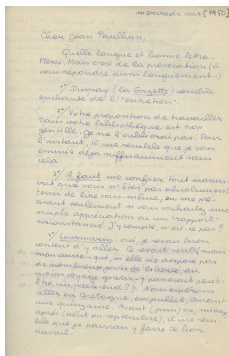 mercredi soir [1950]
Cher Jean Paulhan,
Quelle longue et bonne lettre.
Merci. Mais c'est de la provocation (à
vous répondre aussi longuement...)
1° Dumay (la Gazette) semble
enchanté de l'"entretien".
2° Votre proposition de travailler
dans votre bibliothèque est très
gentille. Je ne l'oublierai pas. Pour
l'instant, il me semble que je vous
ennuie déjà suffisamment sans
cela.
3° Il faut me confier tout manus-
crit que vous n'êtes pas absolument
tenu de lire vous-même, en me pré-
cisant seulement si vous souhaitez une
simple appréciation ou un "rapport"
circonstancié. J'y compte, n'est-ce pas?
4° Lourmarin : oui, je serais bien
content d'y aller. Ce serait seul, mais
mon amie
un voyage gratuit
allez en Bretagne, en juillet, durant
une quinzaine. Avant (juin) ou mieux
après (août ou septembre), il me sem-
ble que je pourrais y faire un bon
travail.